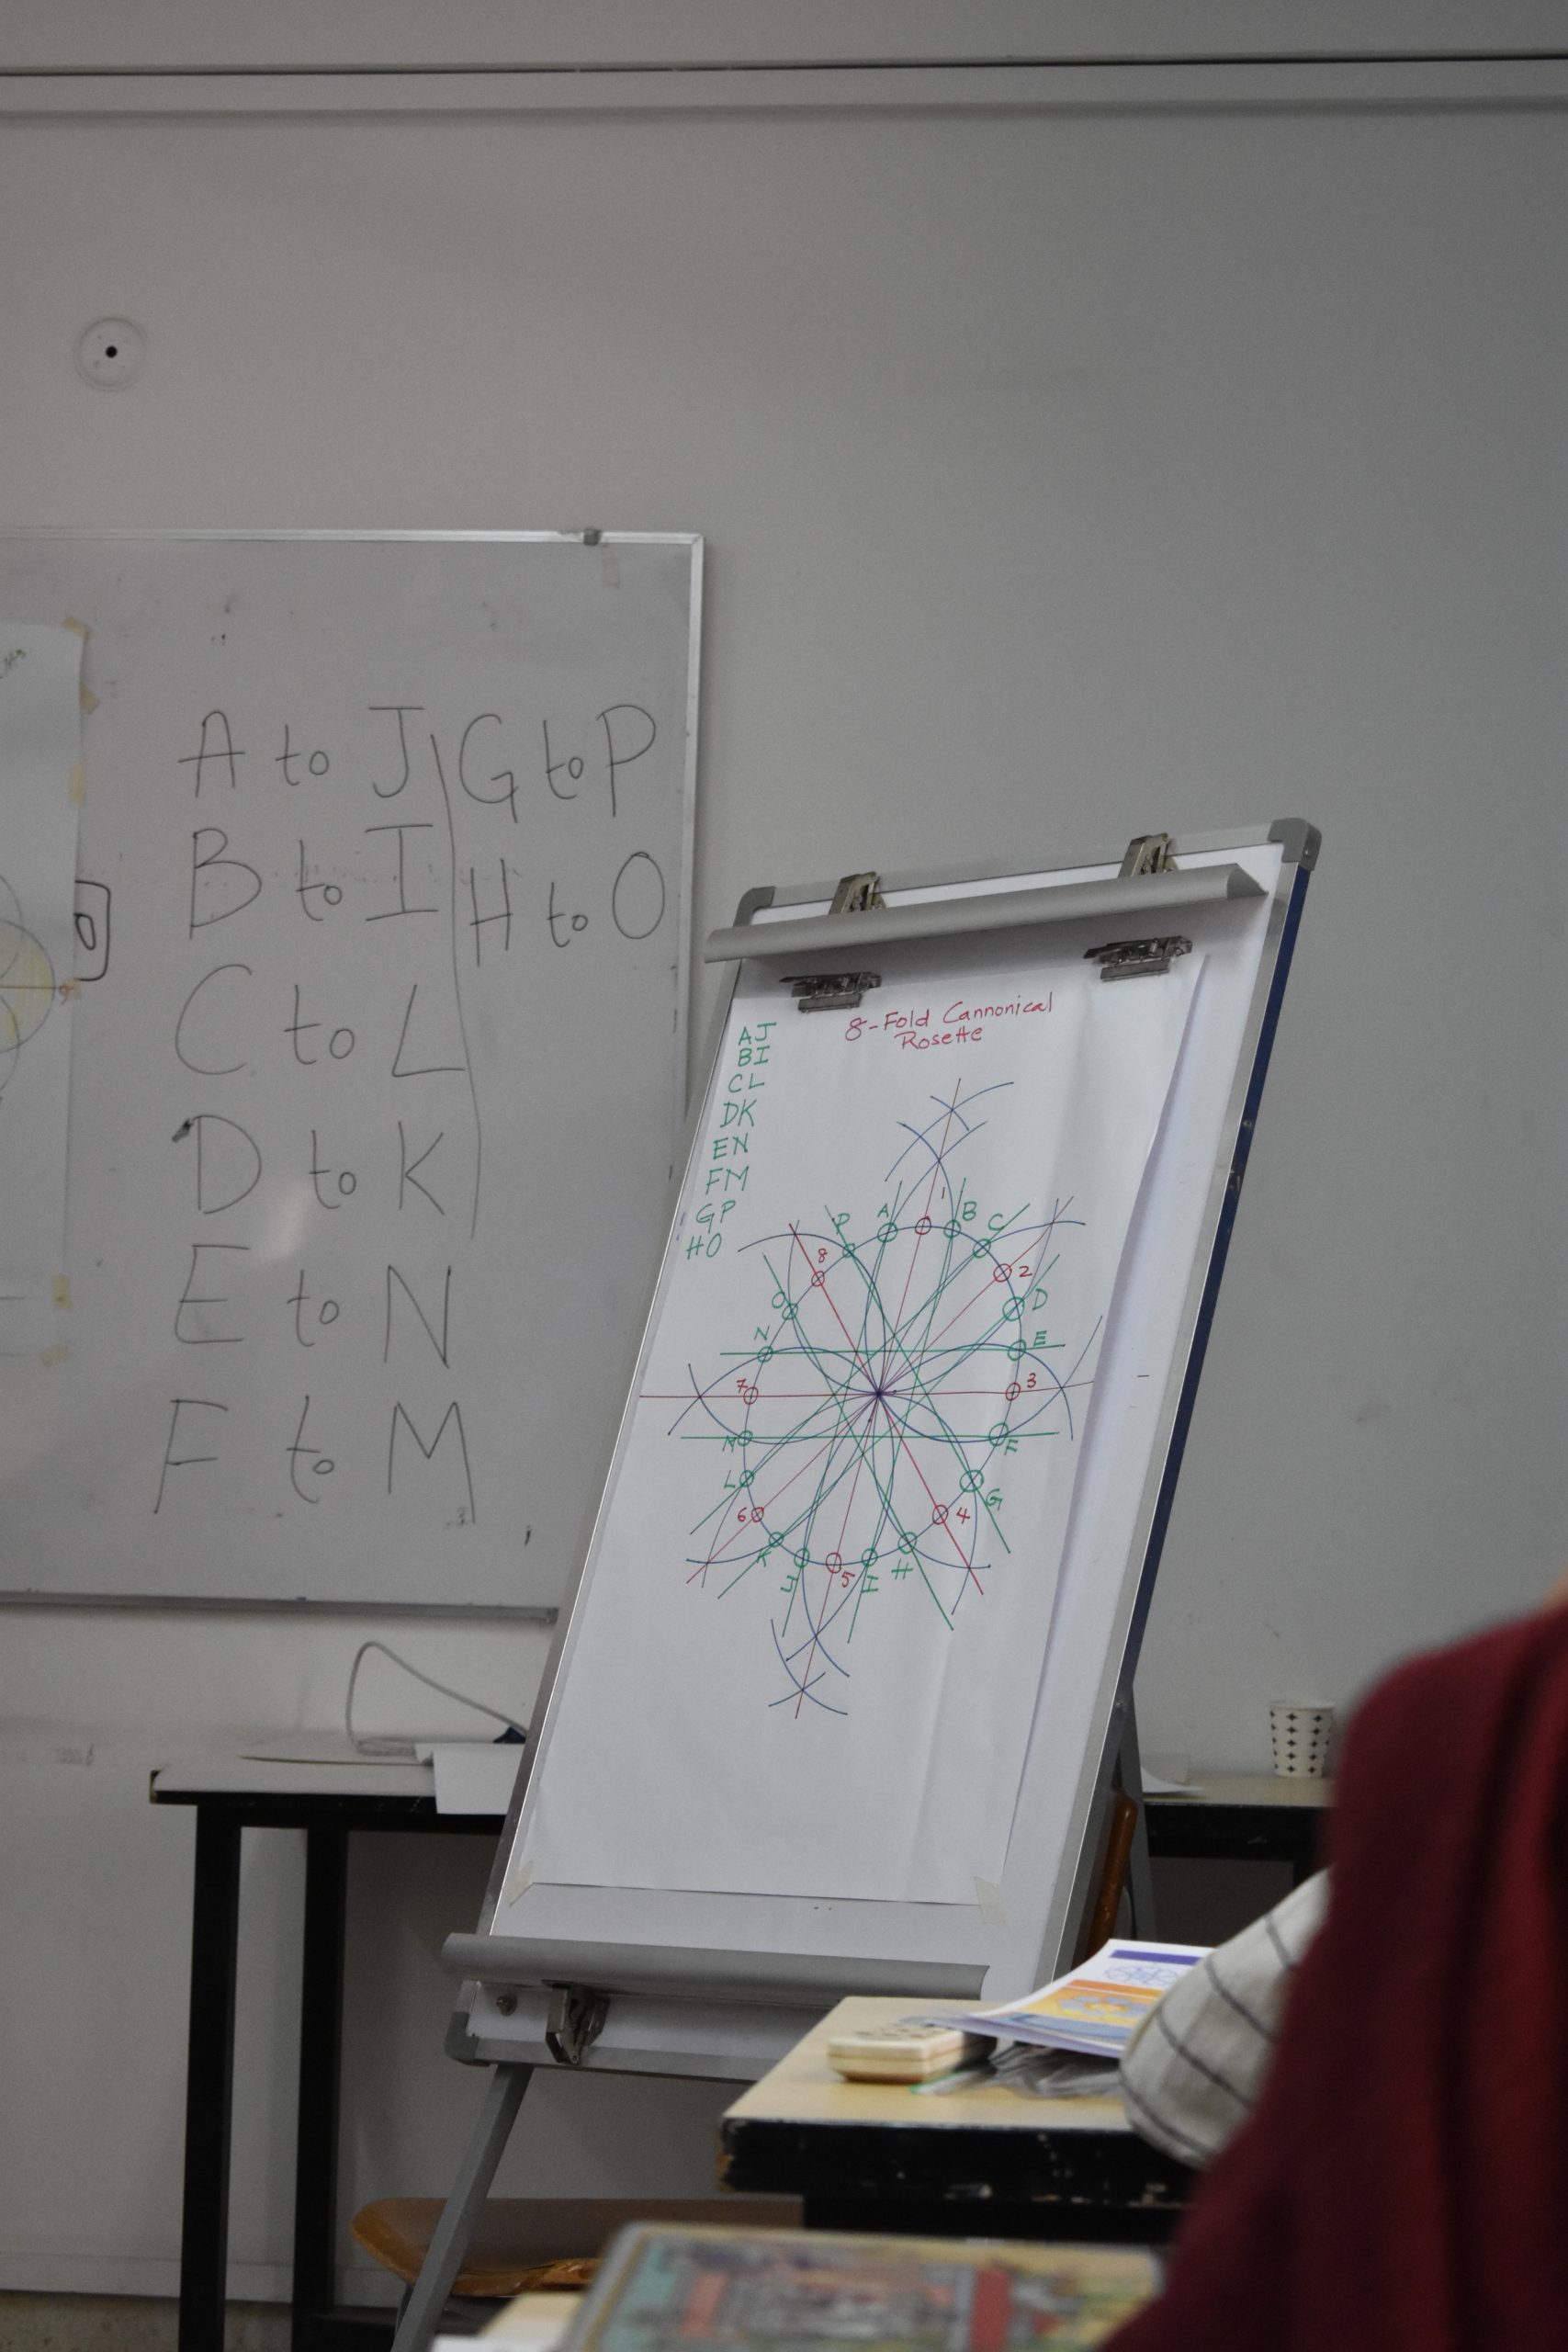 A to J
B to I
C to L
D to K
E to N
F to M
G to P
H to O
8-Fold Cannonical
Rosette
AJ
BI
CL
DK
EN
FM
GP
HO
1
A
B
P
C
8
2
O
D
N
E
7
3
M
F
L
G
6
4
K
J
5
I
H